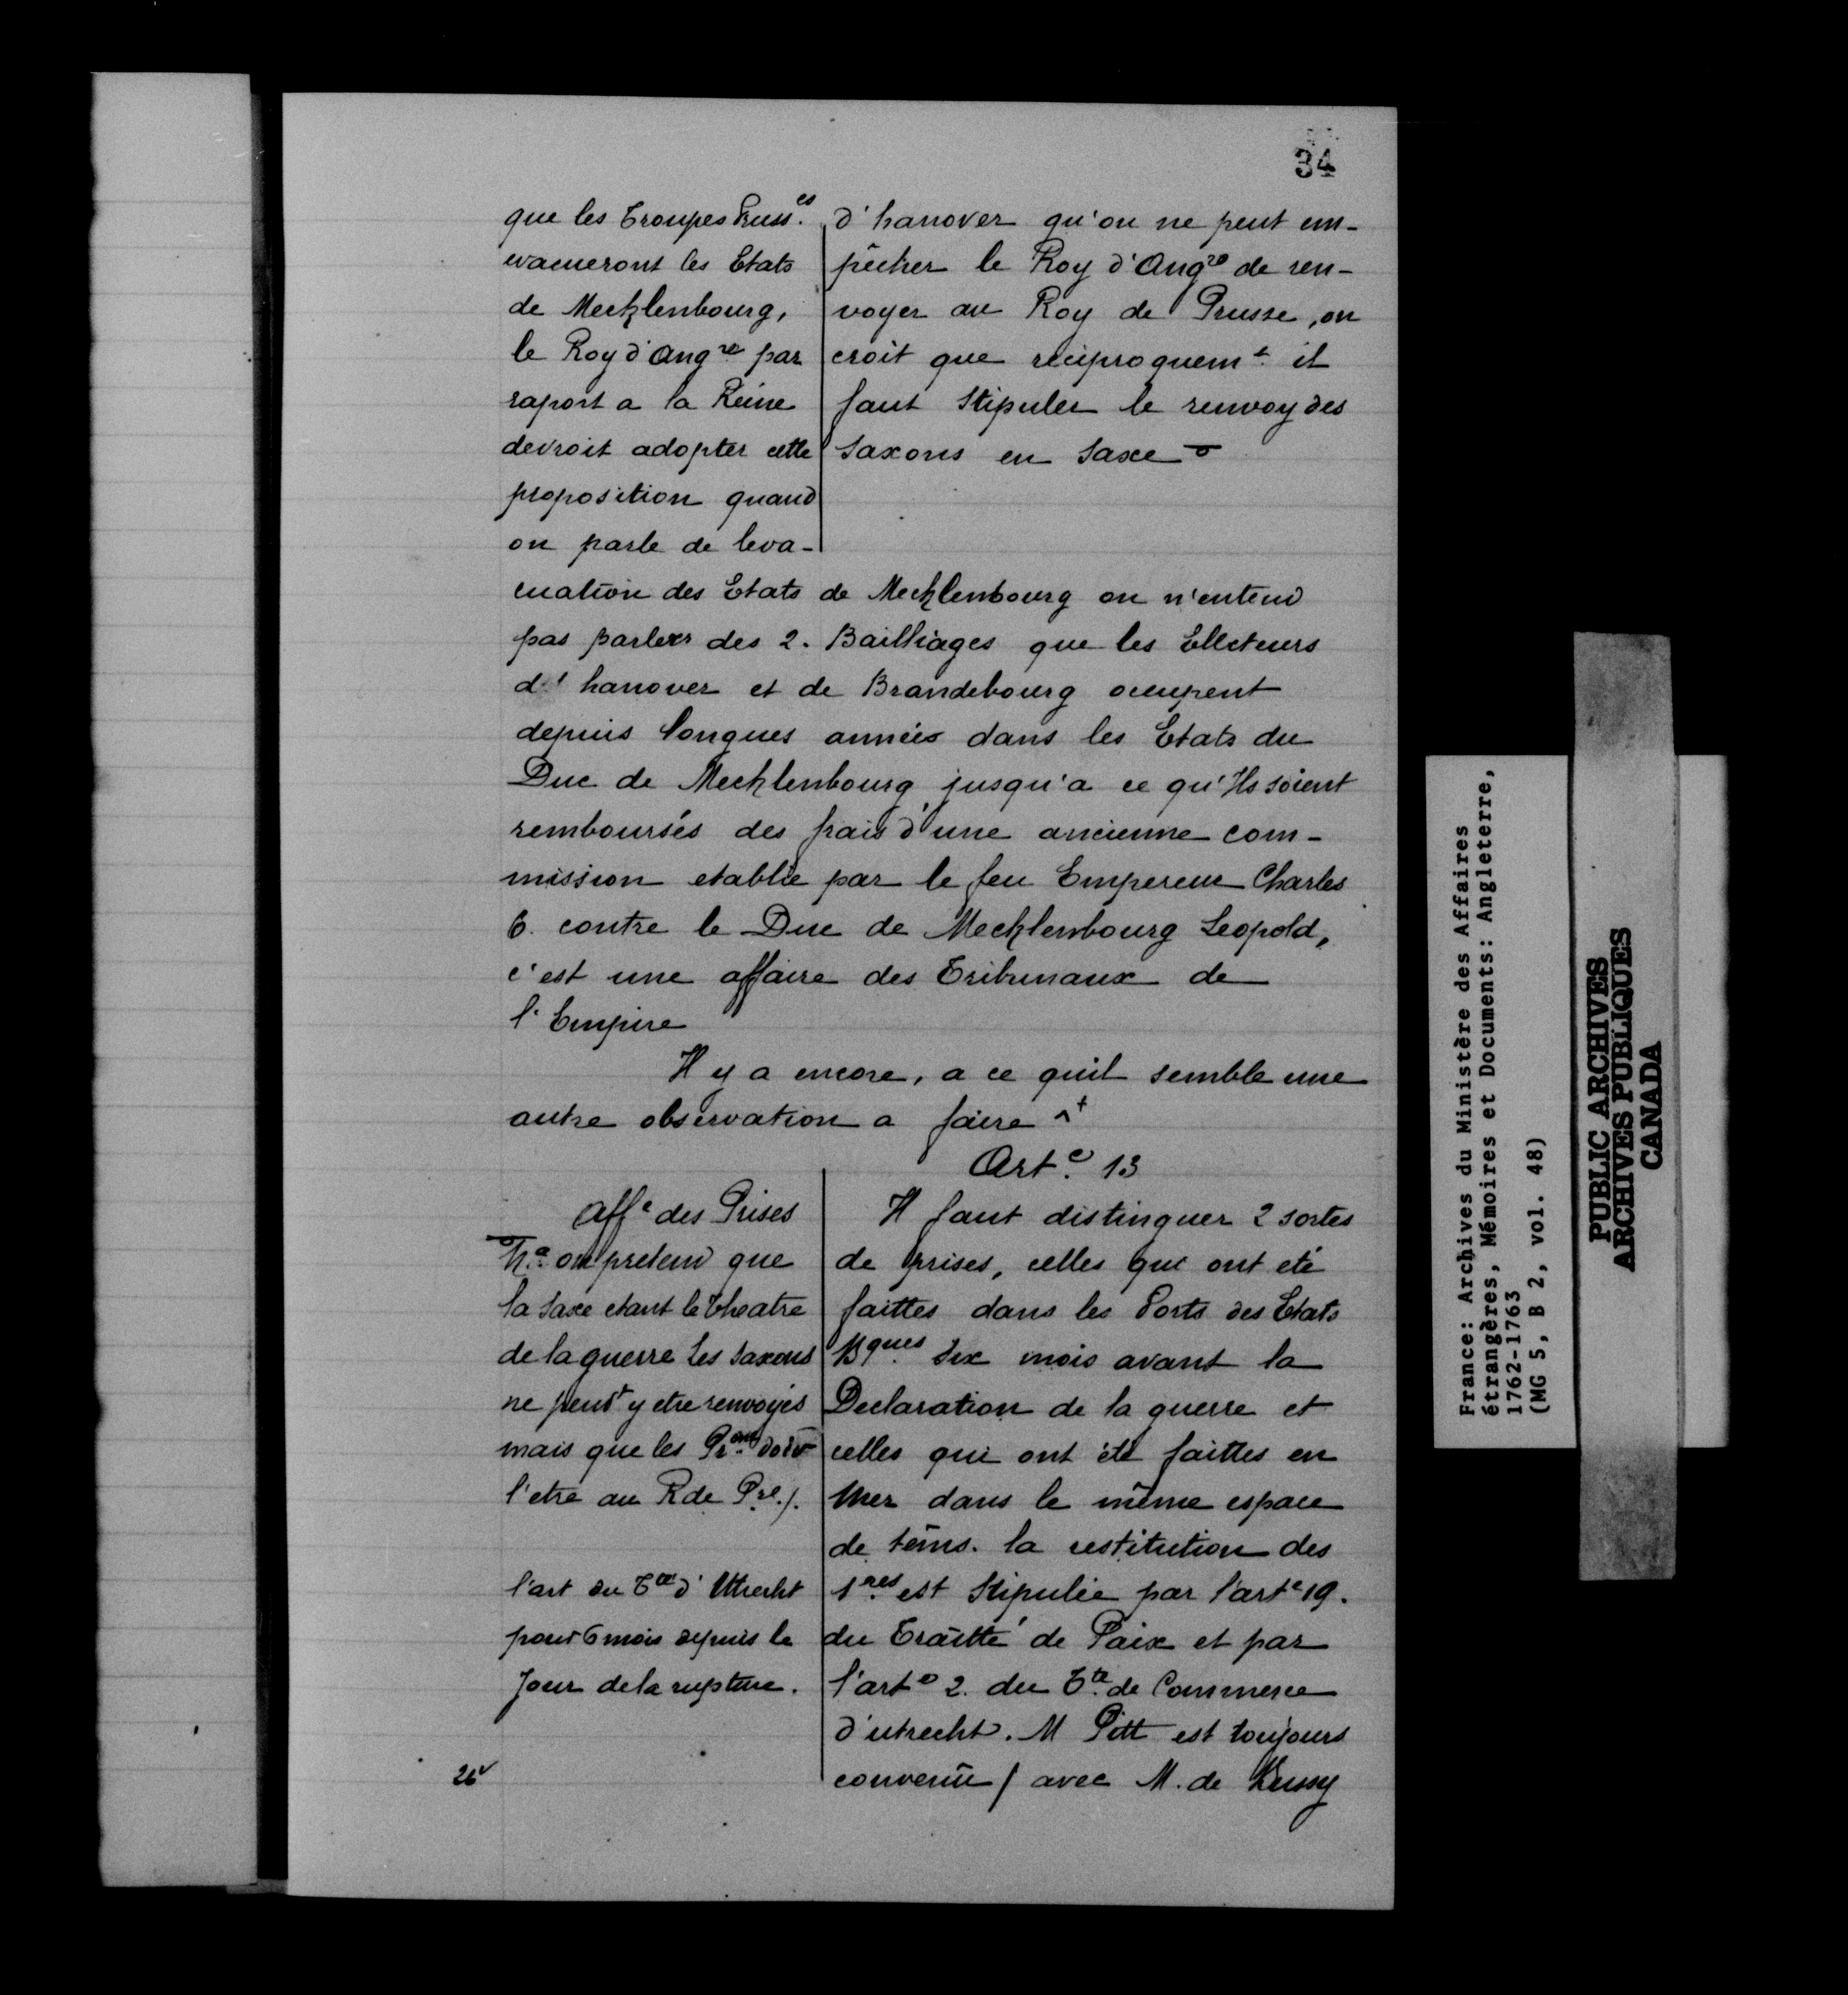 34
que les Troupes Pruss.es
evacueront les Etats
de Mecklenbourg,
le Roy d'Angre par
raport a la Reine
devroit adopter cette
proposition quand
on parle de leva-
d'hanover qu'on ne peut em-
pêcher le Roy d'Angre de ren-
voyer au Roy de Prusse, on
croit que reciproquemt. il
faut Stipuler le renvoy des
Saxons en Saxe
cuation des Etats de Mecklenbourg on n'entend
pas parler des 2. Bailliages que les Electeurs
d'hanover et de Brandebourg occupent
depuis longues années dans les Etats du
Duc de Mecklenbourg jusqu'a ce qu'Ils soient
remboursés des frais d'une ancienne com-
mission etablie par le feu Empereur Charles
6. contre le Duc de Mecklenbourg Leopold,
c'est une affaire des Tribunaux de
l'Empire
Il y a encore, a ce quil semble une
autre observation a faire +
Art.e 13
affe des Prises
Na. on pretend que
la Saxe etant le theatre
de la guerre les Saxons
ne peuvt y etre renvoyés
mais que les doiv
l'etre au R de Pre./.
l'art du Tté d'Utrecht
pour 6 mois depuis le
Jour de la rupture.
Il faut distinguer 2 sortes
de prises, celles qui ont eté
faittes dans les Ports des Etats
Bques. Six mois avant la
Declaration de la guerre et
celles qui ont été faittes en
Mer dans le même espace
de têms. la restitution des
1res. est Stipulée par l'arte 19.
du Traitté de Paix et par
l'arte 2. du Tté. de Commerce
d'utrecht. M Pitt est toujours
convenu / avec M. de Bussy
26v
France: Archives du Ministère des Affaires
étrangères, Mémoires et Documents: Angleterre,
1762-1763
(MG 5, B 2, vol. 48)
PUBLIC ARCHIVES
ARCHIVES PUBLIQUES
CANADA